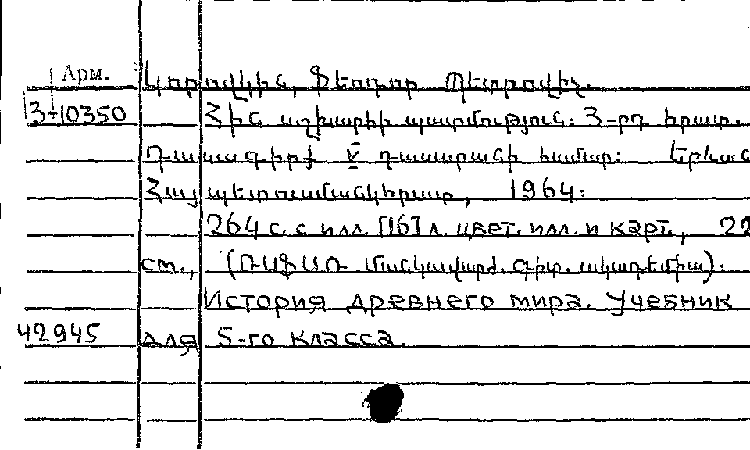 Арм. Կորովկին, Ֆեոդոր Պետրովիչ.
3-10350 Հին աշխարհի պատմություն: 3-րդ հրատ.
Դասագիրք V դասարանի համար: Երևան
Հայպետուսմանկհրատ, 1964:
264 с. с илл. [16] л. цвет. илл. и карт., 22
см., (ՌՍՖՍՌ մանկավարժ. գիտ. ակադեմիա).
История древнего мира. Учебник
42945 для 5-го класса.